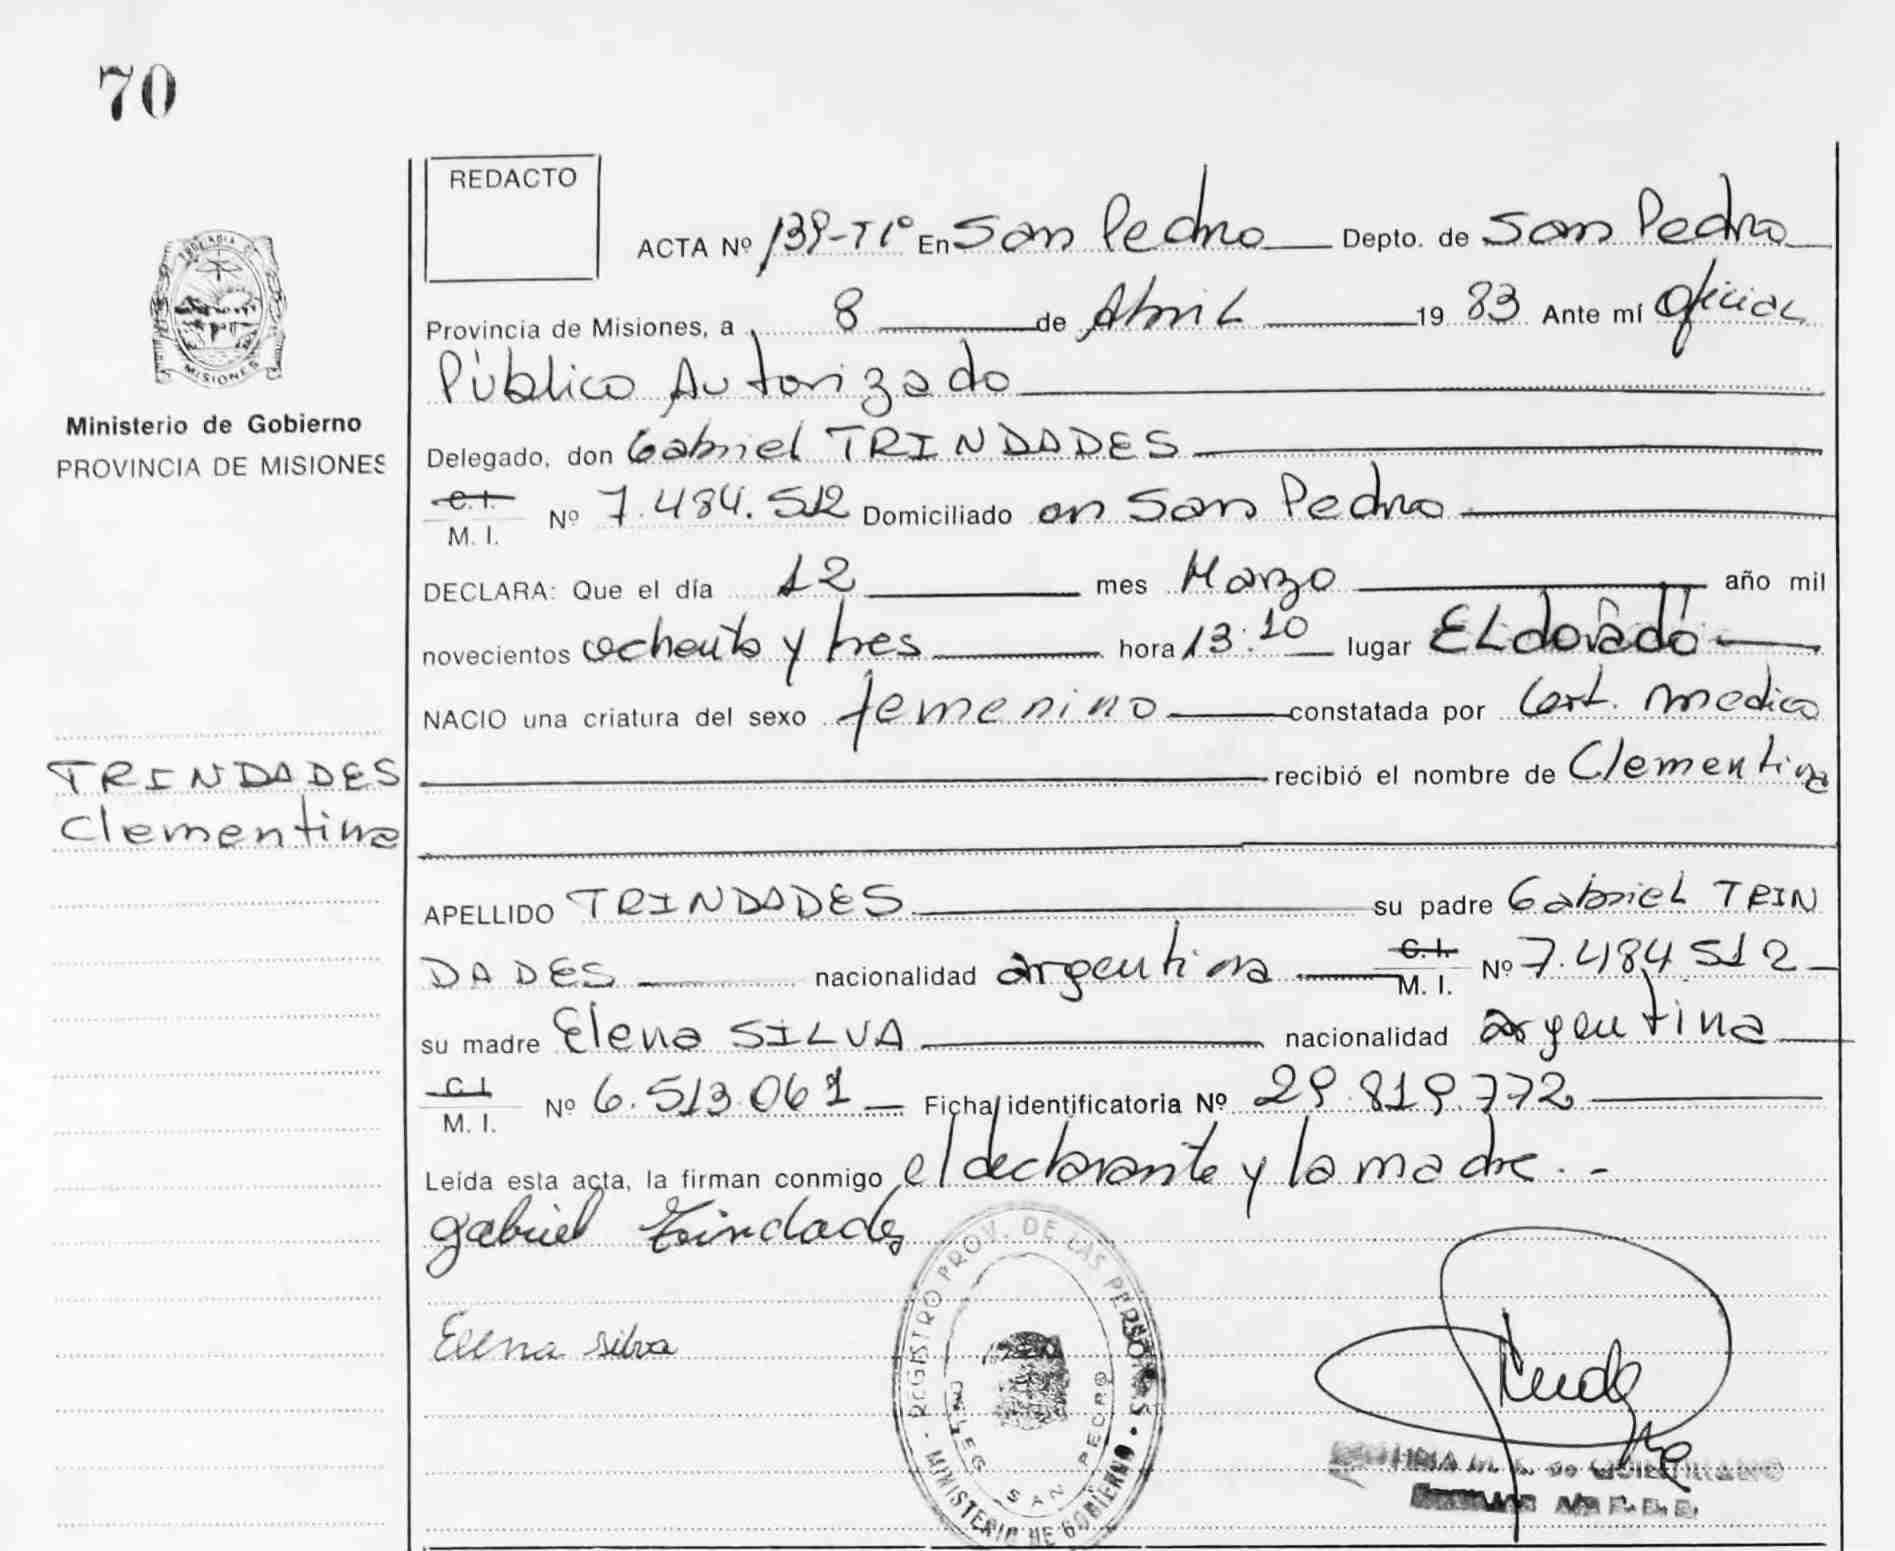 70
REDACTO
ACTA Nº 139-T1º En San Pedro Depto. de San Pedro
Provincia de Misiones, a 8 de Abril 1983 Ante mí Oficial
Público Autorizado
Ministerio de Gobierno
PROVINCIA DE MISIONES
Delegado, don Gabriel TRINDADES
C. I.
M. I. Nº 7.484.512 Domiciliado en San Pedro
DECLARA: Que el día 12 mes Marzo año mil
novecientos ochenta y tres hora 13:10 lugar ELdorado
NACIO una criatura del sexo femenino constatada por Cert. medico
recibió el nombre de Clementina
TRINDADES
Clementina
APELLIDO TRINDADES su padre Gabriel TRIN
DADES nacionalidad argentina C. I. M. I. Nº 7.484512
su madre Elena SILVA nacionalidad argentina
C. I.
M. I. Nº 6.513.061 Ficha identificatoria Nº 29.819.772
Leída esta acta, la firman conmigo el declarante y la madre.-
gabriel Trindades
Elena silva
REGISTRO PROV. DE LAS PERSONAS
DELEG. SAN PEDRO
MINISTERIO DE GOBIERNO
MISIONES